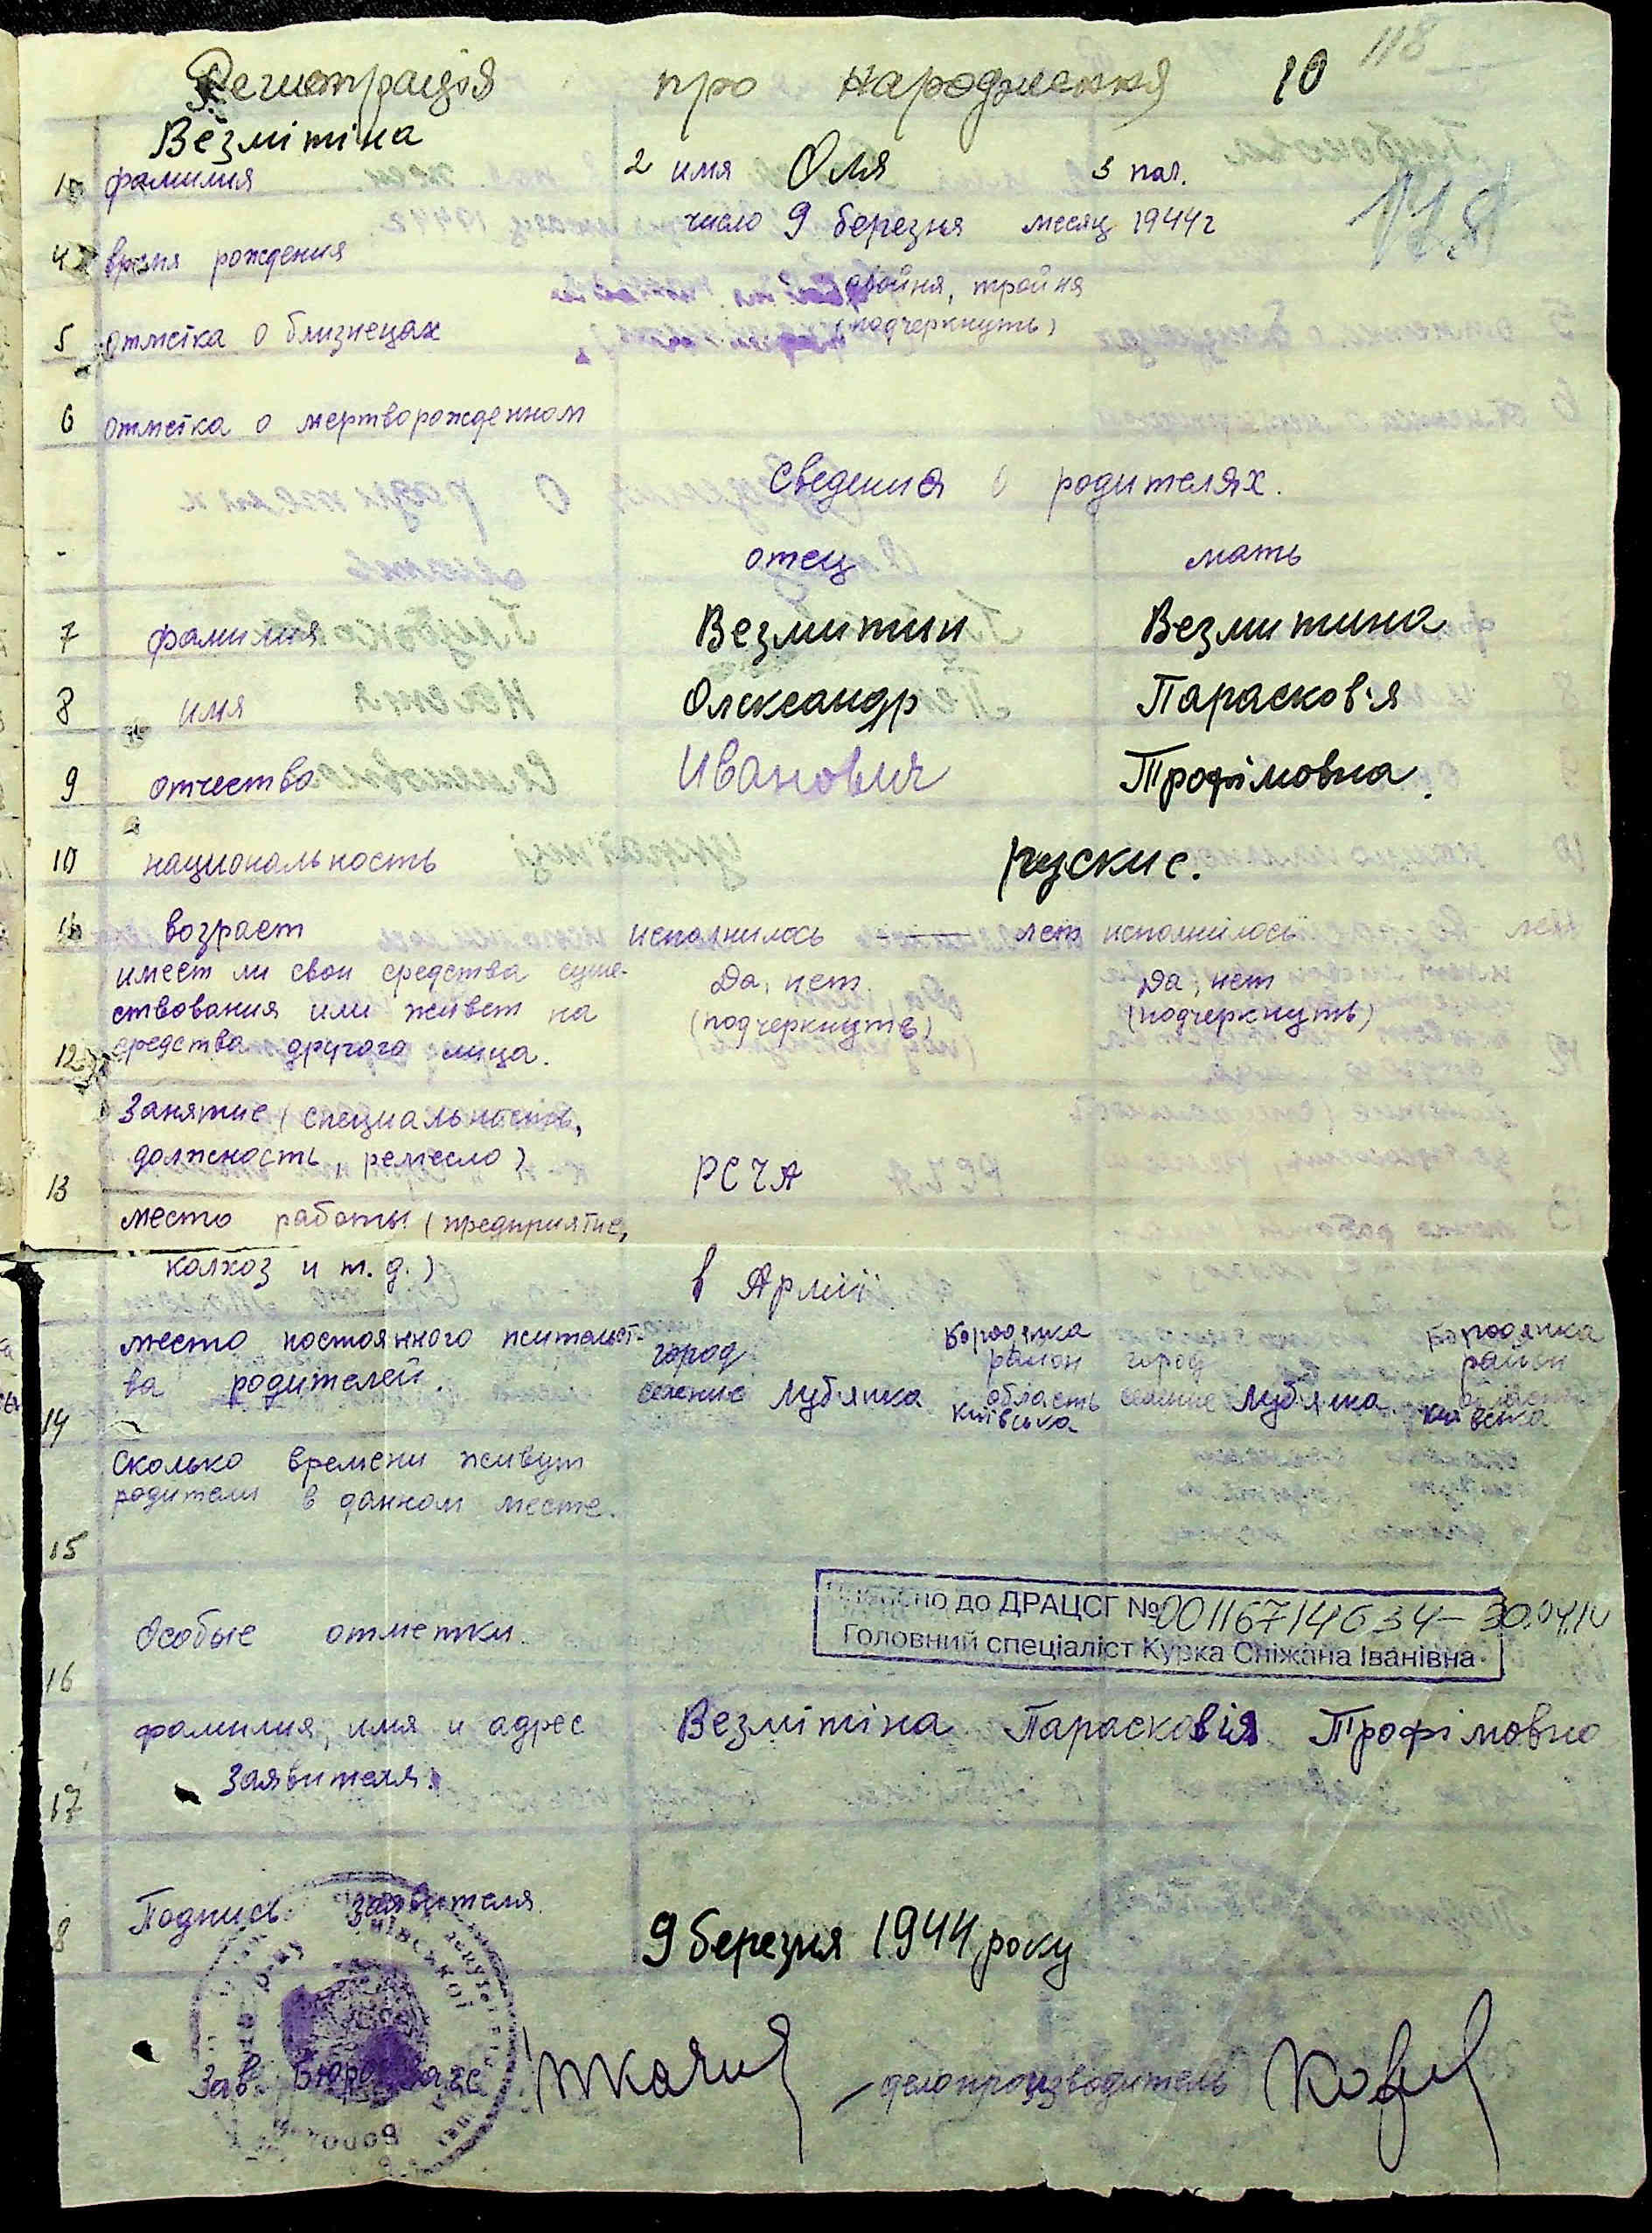 Регистрация про народження 10 118
Везмітіна
1 фамилия 2 имя Оля 3 пол. 118
4 время рождения число 9 березня месяц 1944 г
двойня, тройня
5 отметка о близнецах (подчеркнуть)
6 отметка о мертворожденном
Сведения о родителях.
отец мать
7 фамилия Везмитин Везмитина
8 имя Олександр Парасков'я
9 отчество Иванович Трофімовна.
10 национальность руские.
11 возраст исполнилось — лет исполнилось лет
имеет ли свои средства суще-
ствования или живет на
12 средства другого лица.
Да, нет. Да, нет
(подчеркнуть) (подчеркнуть)
Занятие (специальность,
13 должность, ремесло) РСЧА
место работы (предприятие,
колхоз и т.д.) в Армії
место постоянного жительст-
14 ва родителей.
город Бородянка район город Бородянка район
селение Луб'янка область Київська селение Луб'янка область Київська
Сколько времени живут
15 родители в данном месте.
16 Особые отметки.
до ДРАЦСГ № 00116714634 – 30.04.10
Головний спеціаліст Курка Сніжана Іванівна
фамилия, имя и адрес Везмітіна Парасковія Трофімовна
17 заявителя.
8 Подпись заявителя.
9 березня 1944 року
Зав. Бюро Загс Ткачик делопроизводитель